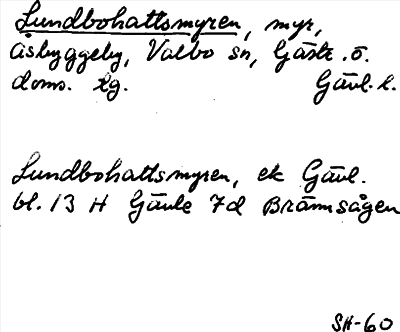 Lundbohattsmyren, myr,
Åsbyggeby, Valbo sn, Gästr. ö.
doms. tg. Gävl. l.
Lundbohattsmyren, ek Gävl.
bl. 13 H Gävle 7d Brännsågen
SH-60